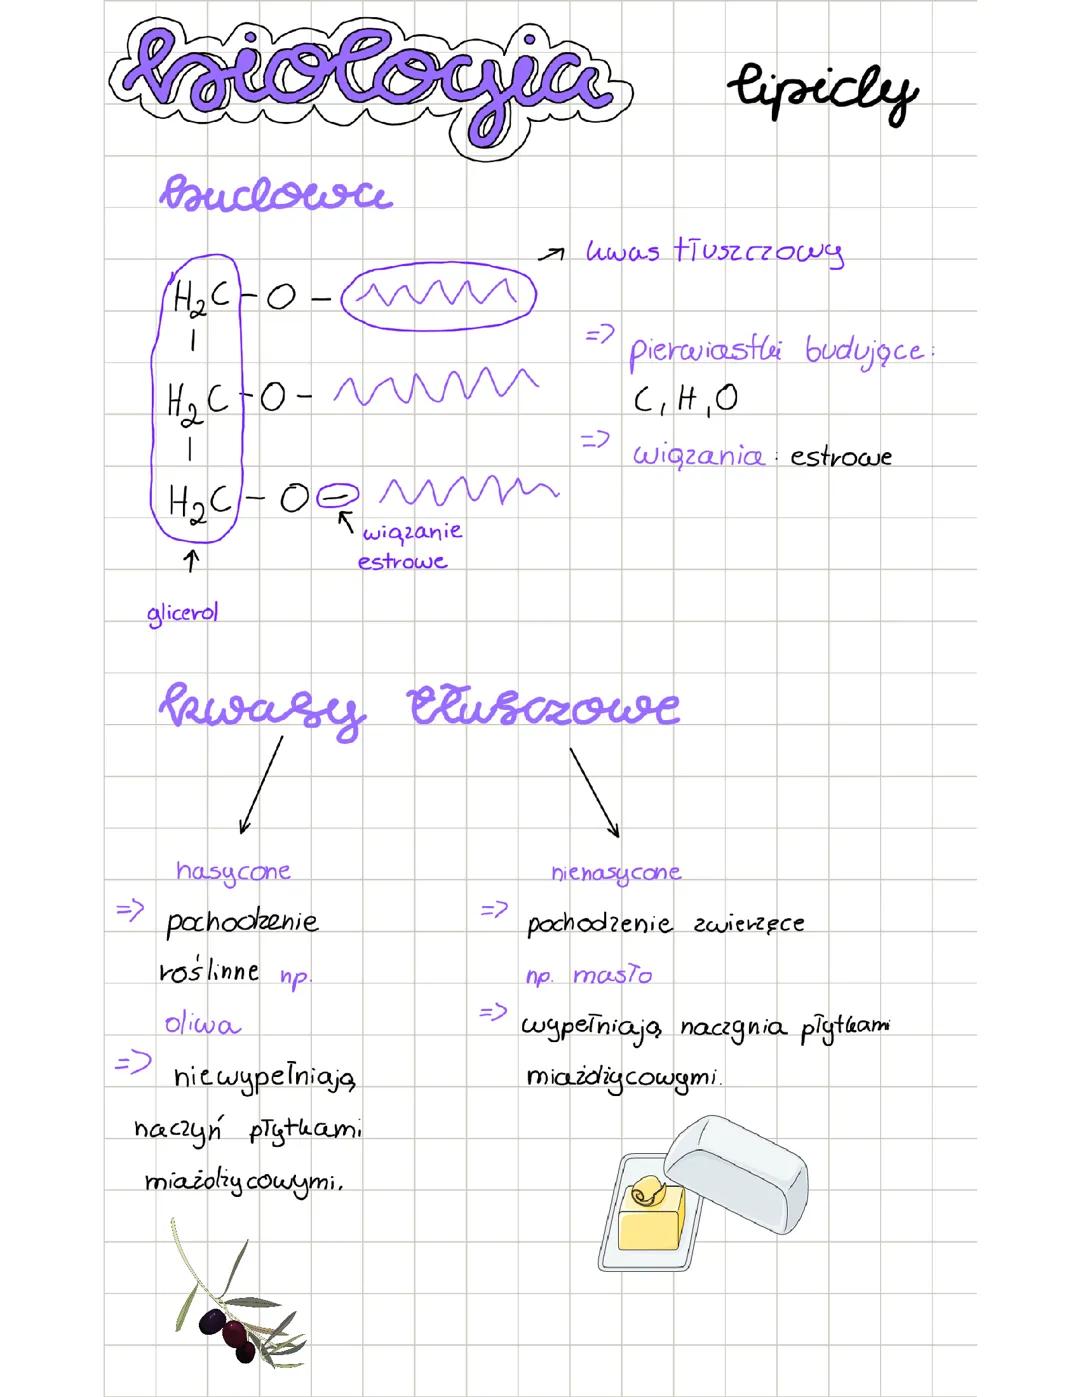 biologia
lipidy
budowa
kwas tłuszczowy
H₂C - O -
|
H₂C - O -
|
H₂C - O -
=> pierwiastki budujące:
C, H, O
=> wiązania: estrowe
wiązanie
estrowe
glicerol
kwasy tłuszczowe
nasycone
=> pochodzenie
roślinne np.
oliwa
=> niewypełniają
naczyń płytkami
miażdżycowymi.
nienasycone
=> pochodzenie zwierzęce
np. masło
=> wypełniają naczynia płytkami
miażdżycowymi.